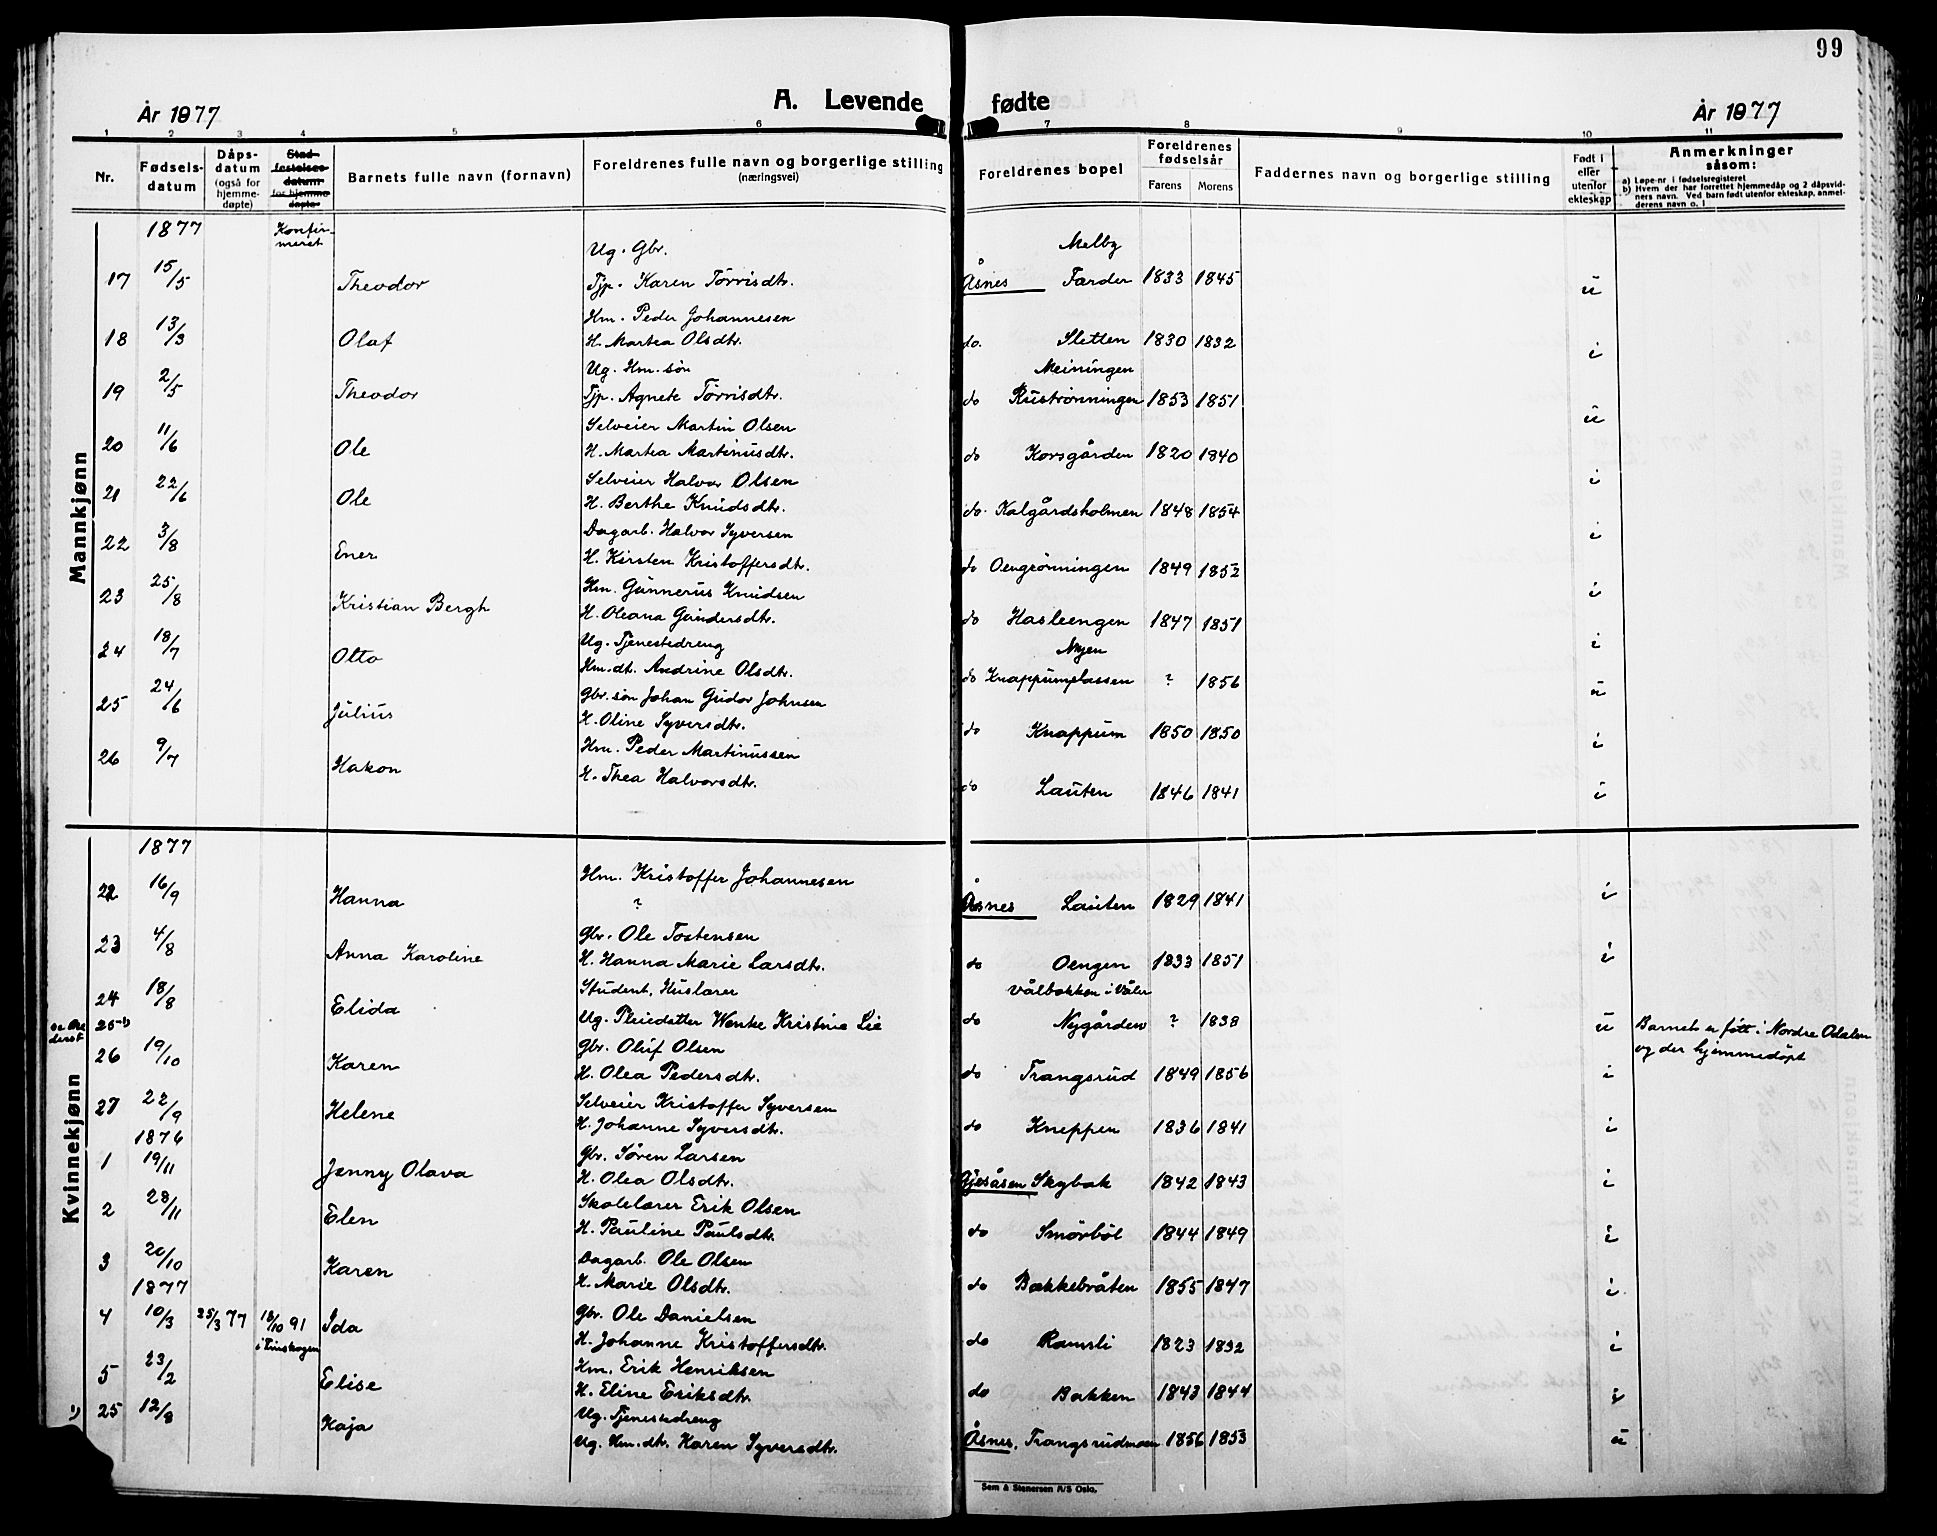 99
A. Levende fødte
År 1877
År 1877
1 2 3 4 5 6 7 8 9 10 11
Nr. Fødsels-datum Dåps-datum (også for hjemme-døpte) Stad-festelses-datum for hjemme-døpte Barnets fulle navn (fornavn) Foreldrenes fulle navn og borgerlige stilling (næringsvei) Foreldrenes bopel Foreldrenes fødselsår Farens Morens Faddernes navn og borgerlige stilling Født i eller utenfor ekteskap Anmerkninger såsom:
a) Løpe-nr i fødselsregisteret
b) Hvem der har forrettet hjemmedåp og 2 dåpsvidners navn. Ved barn født utenfor ekteskap, anmelderens navn o. l
Mannkjønn
1877 Konfirmeret
Ug. Gbr. Melby
17 15/5 Theodor Tjp. Karen Tørrisdtr. Åsnes Farder 1833 1845 u
Hm. Peder Johannesen
18 13/3 Olaf H. Martea Olsdtr. do. Sletten 1830 1832 i
Ug. Hm. søn Meiningen
19 2/5 Theodor Tjp. Agnete Tørrisdtr. do Rustrønningen 1853 1851 u
Selveier Martin Olsen
20 11/6 Ole H. Martea Martinusdtr. do Korsgården 1820 1840
Selveier Halvor Olsen i
21 22/6 Ole H. Berthe Knudsdtr. do. Kalgårdsholmen 1848 1854
Dagarb. Halvor Syversen i
22 3/8 Ener H. Kirsten Kristoffersdtr. do Oengrønningen 1849 1852
Hm. Gunnerus Knudsen i
23 25/8 Kristian Bergh H. Oleana Gundersdtr. do Hasleengen 1847 1851
Ug. Tjenestedreng Nyen i
24 18/7 Otto Hm. dt. Andrine Olsdtr. do Knappumplassen ? 1856 u
Gbr. søn Johan Gudor Johnsen
25 24/6 Julius H. Oline Syversdtr. do Knappum 1850 1850 i
Hm. Peder Martinussen
26 9/7 Hakon H. Thea Halvorsdtr. do Lauten 1846 1841 i
Kvinnekjønn
1877
Hm. Kristoffer Johannesen
22 16/9 Hanna ? Åsnes Lauten 1829 1841 i
Gbr. Ole Tostensen
23 4/8 Anna Karoline H. Hanna Marie Larsdtr. do Oengen 1833 1851 i
Student, Huslærer Vålbakken i Våler
24 18/8 Elida Ug. Pleiedatter Wenke Kristine Lie do Nygården ? 1838 u Barnet er føtt i Nordre Odalen
25 1) og der hjemmedøpt
Gbr. Oluf Olsen
26 19/10 Karen H. Olea Pedersdtr. do Trangsrud 1849 1856 i
Selveier Kristoffer Syversen
27 22/9 Helene H. Johanne Syversdtr. do Kneppen 1836 1841 i
1876
Gbr. Søren Larsen
1 19/11 Jenny Olava H. Olea Olsdtr. Gjesåsen Skybak 1842 1843 i
Skolelærer Erik Olsen
2 28/11 Elen H. Pauline Paulsdtr. do Smörböl 1844 1849 i
Dagarb. Ole Olsen
3 20/10 Karen H. Marie Olsdtr. do Bakkebråten 1855 1847 i
1877
Gbr. Ole Danielsen
4 10/3 25/3 77 18/10 91 Ida H. Johanne Kristoffersdtr. do Ramsli 1823 1832 i
Hm. Erik Henriksen
5 23/2 Elise H. Eline Eriksdtr. do Bakken 1843 1844 i
Ug. Tjenestedreng
1) 25 12/8 Kaja Ug. Hm. dtr. Karen Syversdtr. Åsnes, Trangsrudmoen 1856 1853 u
Sem & Stenersen A/S Oslo.